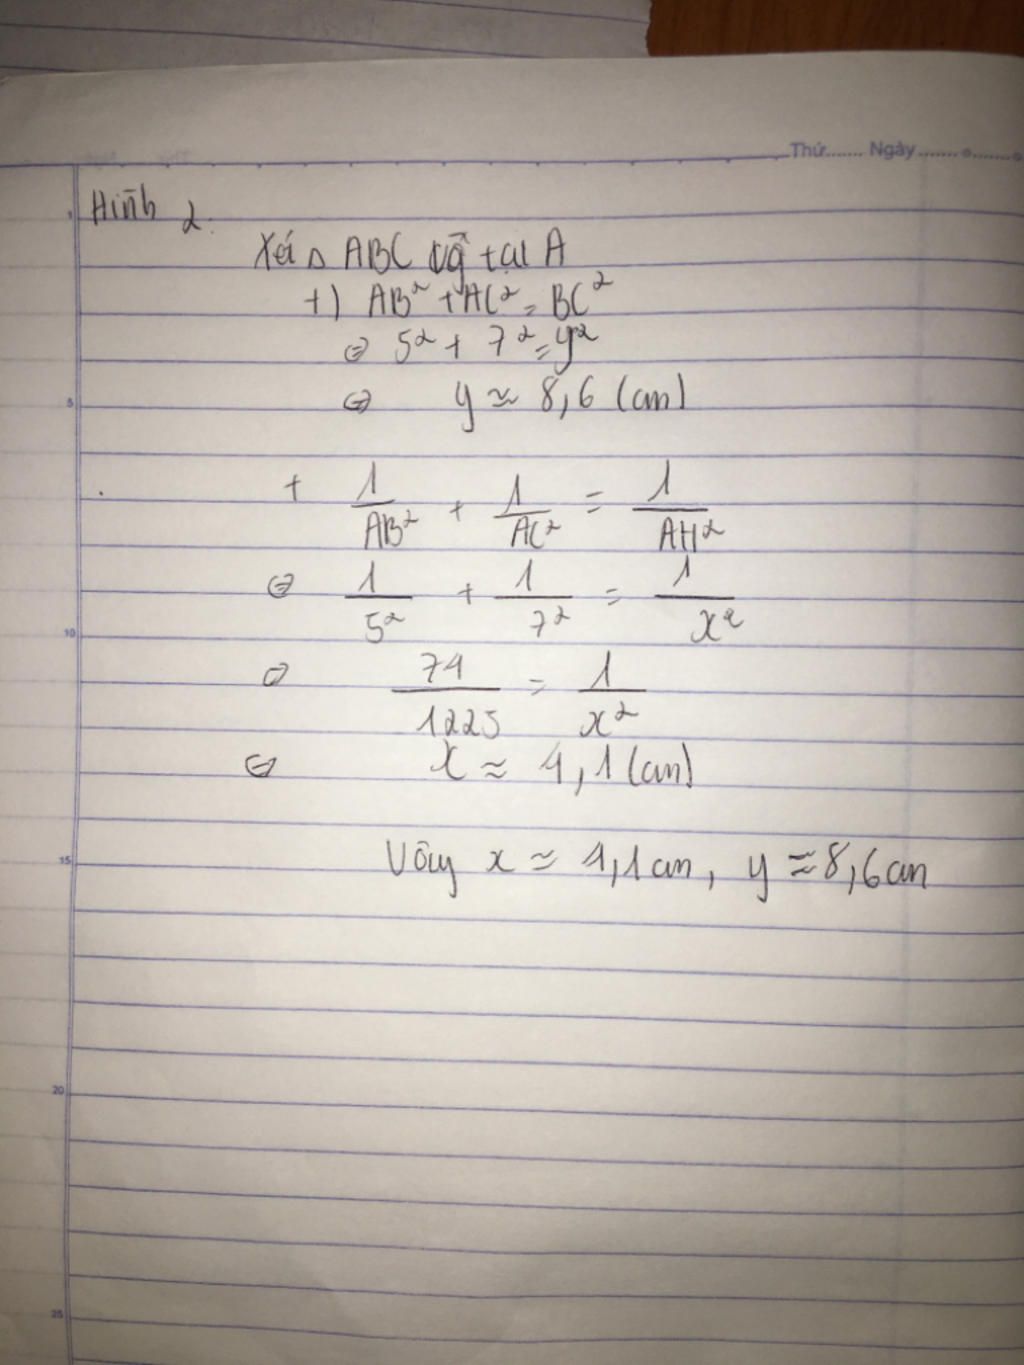 Thứ....... Ngày ....... o ....... o
Hình 2.
Xét △ ABC vg̃ tại A
+) AB² + AC² = BC²
⇔ 5² + 7² = y²
⇔ y ≈ 8,6 (cm)
+ 1/AB² + 1/AC² = 1/AH²
⇔ 1/5² + 1/7² = 1/x²
⇔ 74/1225 = 1/x²
⇔ x ≈ 4,1 (cm)
Vậy x ≈ 4,1cm, y ≈ 8,6cm
1
5
10
15
20
25